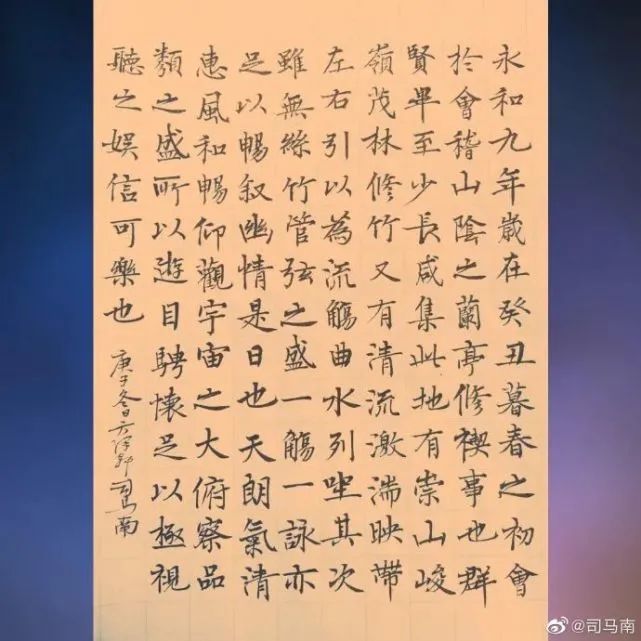 永和九年歲在癸丑暮春之初會
於會稽山陰之蘭亭修禊事也群
賢畢至少長咸集此地有崇山峻
嶺茂林修竹又有清流激湍映帶
左右引以為流觴曲水列坐其次
雖無絲竹管弦之盛一觴一詠亦
足以暢叙幽情是日也天朗氣清
惠風和暢仰觀宇宙之大俯察品
類之盛所以遊目騁懷足以極視
聽之娛信可樂也
庚子冬日司马南
@司马南